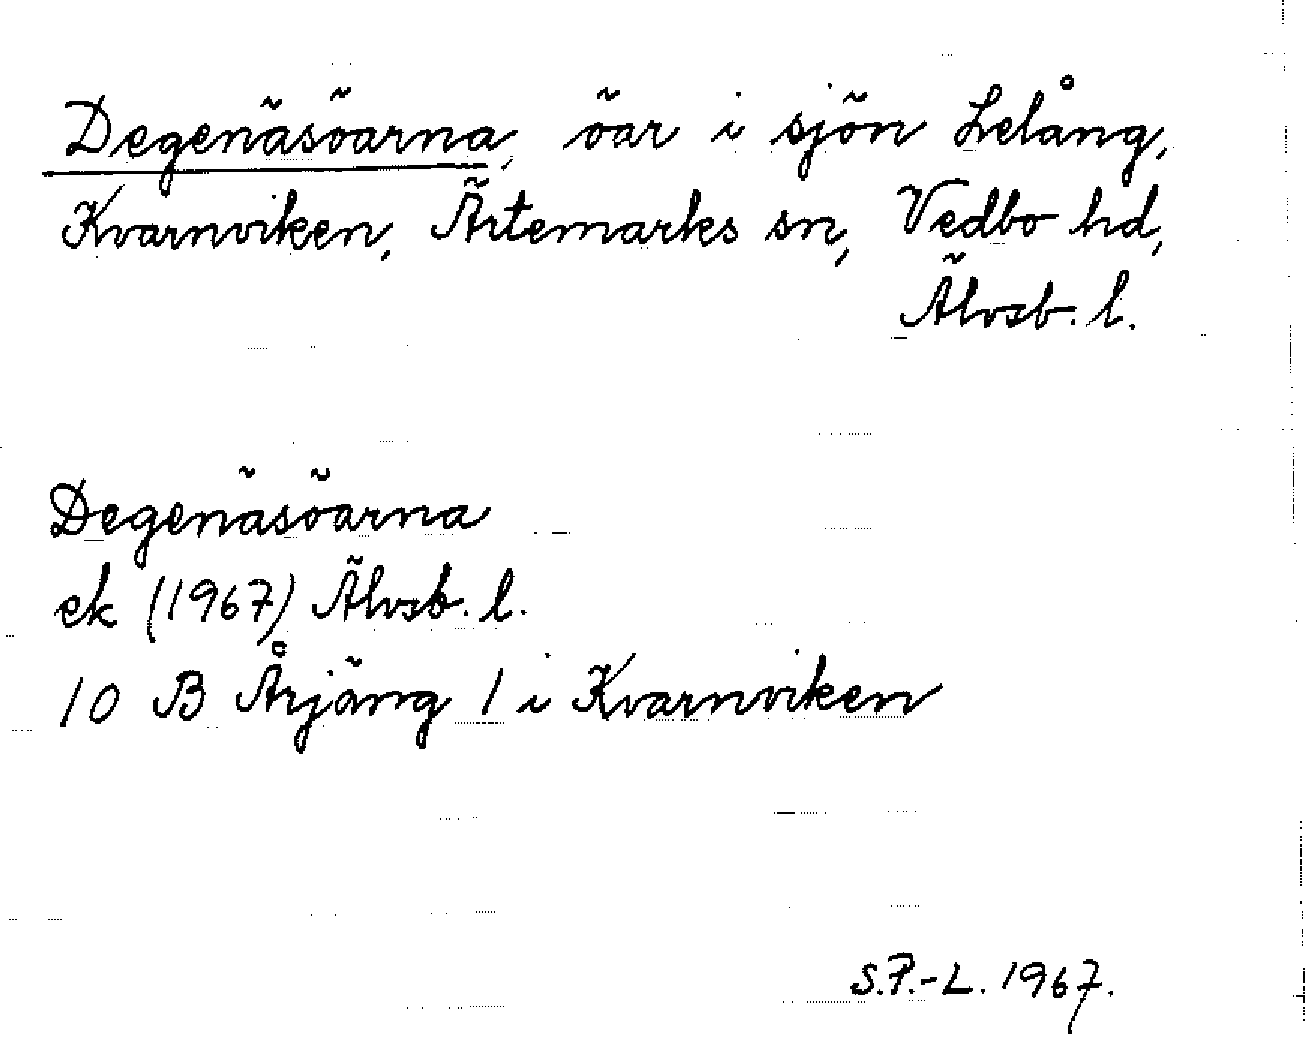 Degenäsöarna, öar i sjön Lelång,
Kvarnviken, Ärtemarks sn, Vedbo hd,
Älvsb. l.
Degenäsöarna
ek (1967) Älvsb. l.
10 B Årjäng 1 i Kvarnviken
S.P.-L. 1967.